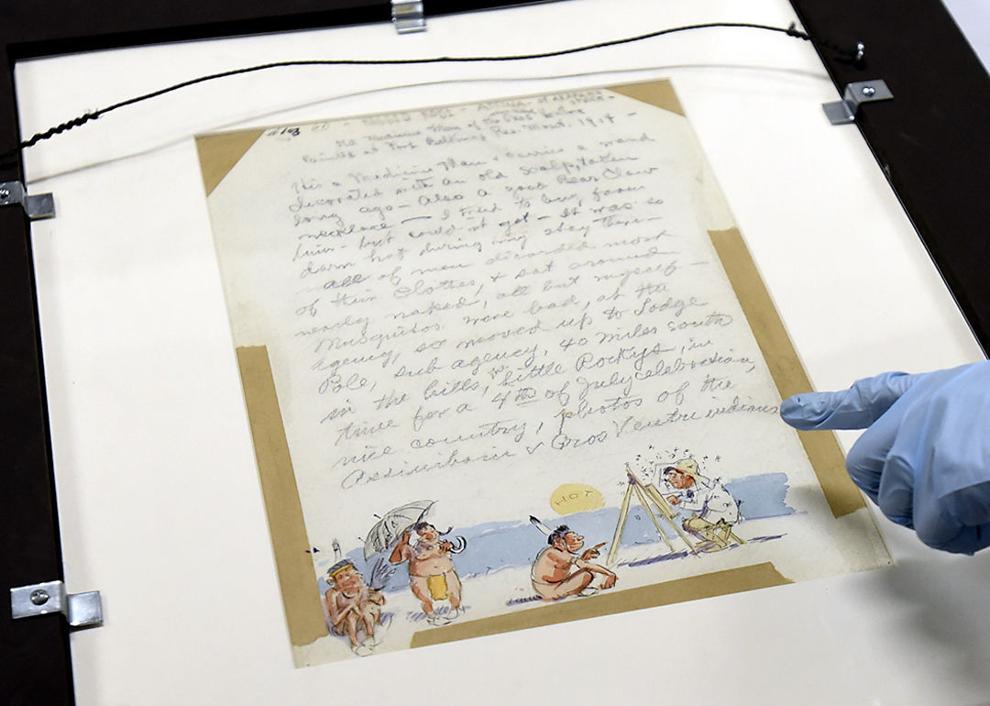 ATSINA - or ARAPAHO
The Medicine Man of the Gros Ventre
Painted at Fort Belknap Res. Mont. 1914 -
He's a Medicine Man & carries a wand
decorated with an old scalp, taken
long ago - Also a good Bear Claw
necklace - I tried to buy from
him - but could not get - It was so
darn hot during my stay there -
all of men discarded most
of their clothes, & sat around
nearly naked, all but myself -
Mosquitos were bad, at the
Agency, so moved up to Lodge
Pole, sub agency, 40 miles south
in the hills, Little Rockys, in
time for a 4th of July celebration,
nice country, photos of the
Assiniboin & Gros Ventre indians
HOT